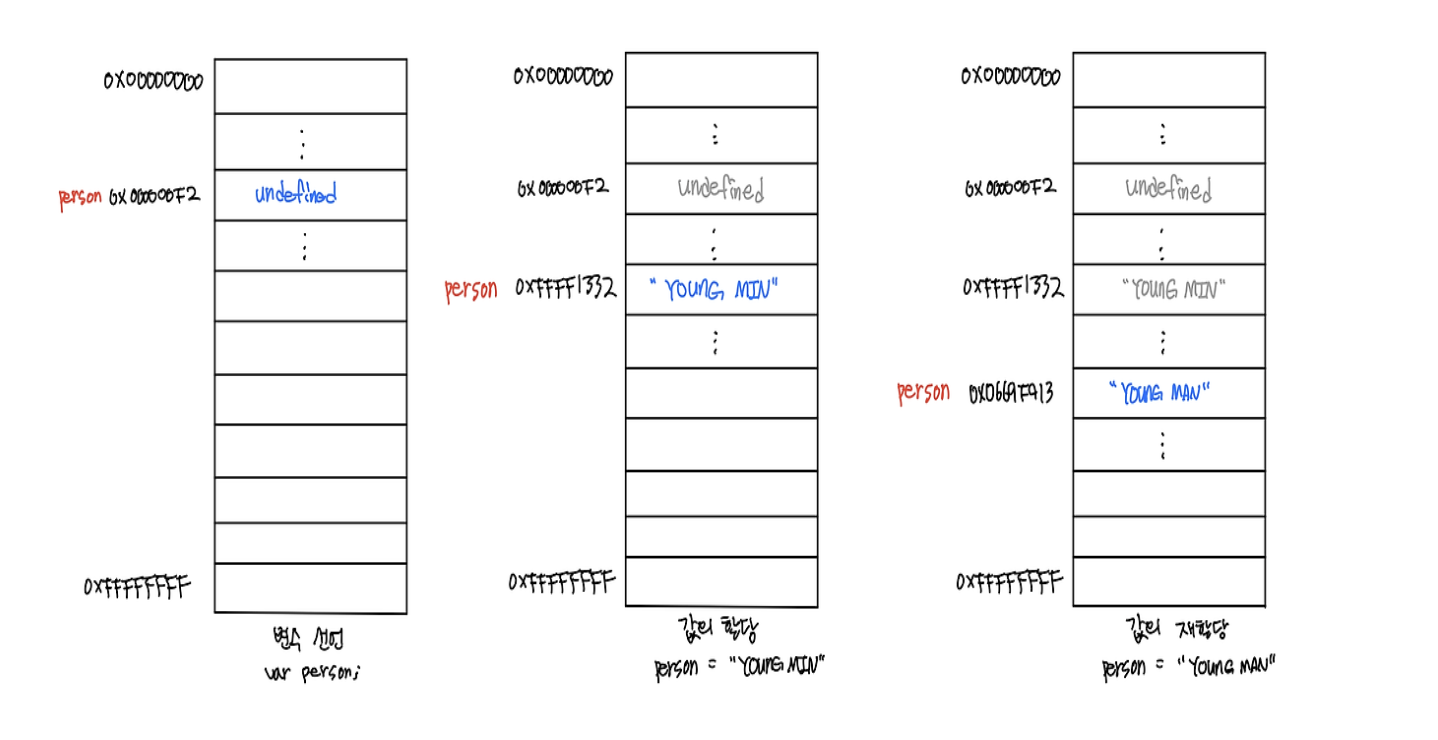 0x00000000
⋮
person 0x000000F2 undefined
⋮
0xFFFFFFFF
변수 선언
var person;
0x00000000
⋮
0x000000F2 undefined
⋮
person 0xFFFF1332 "YOUNG MIN"
⋮
0xFFFFFFFF
값의 할당
person = "YOUNG MIN"
0x00000000
⋮
0x000000F2 undefined
⋮
0xFFFF1332 "YOUNG MIN"
⋮
person 0x0669F913 "YOUNG MAN"
⋮
0xFFFFFFFF
값의 재할당
person = "YOUNG MAN"